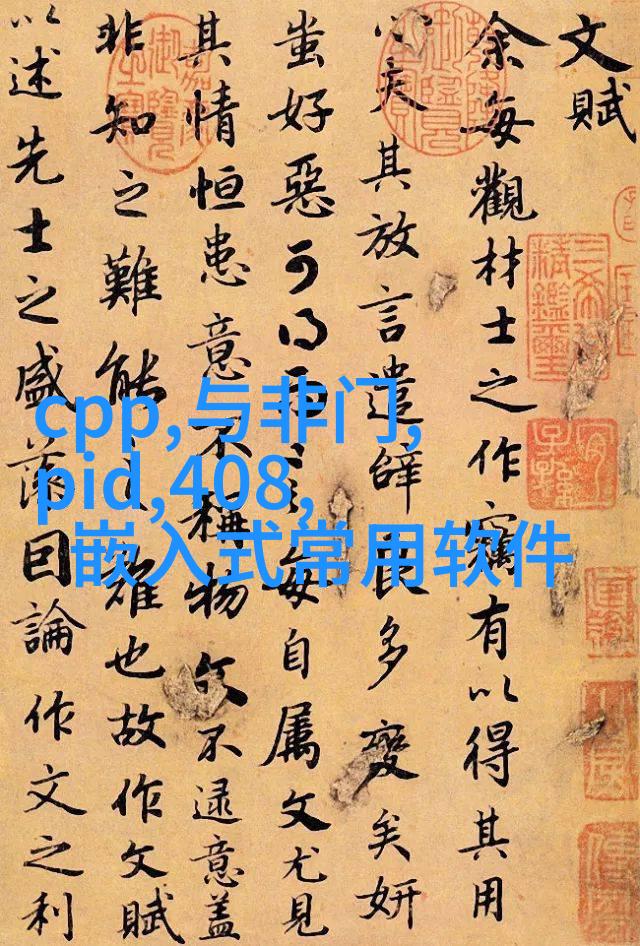 文賦
余每觀材士之作竊有以得其用
心夫其放言遣辭良多變矣妍
蚩好惡可得而言每自屬文尤見
其情恒患意不稱物文不逮意蓋
非知之難能之難也故作文賦
以述先士之盛藻因論作文之利
cpp,与非门,
pid,408,
嵌入式常用软件
三希堂
精鑑璽
宜
子孫